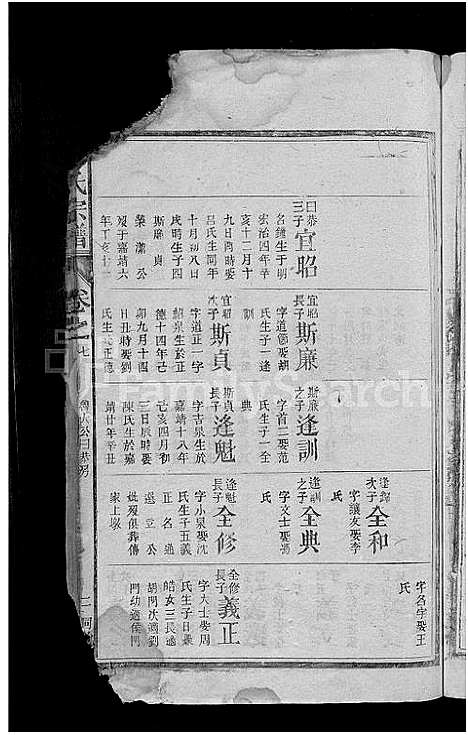 曰恭
三子
宜昭
名鍾生于明
宏治四年辛
亥十二月十
九日酉時娶
呂氏生同年
十月初八日
戌時生子四
斯廉 貞
榮 瀟 公
歿于嘉靖六
年丁亥十一
宜昭
長子
斯廉
字道節娶胡
氏生子一逢
訓
宜昭
次子
斯貞
字道正一字
紹泉生於正
德十四年己
卯九月十四
日丑時娶劉
氏生 正德
斯廉
之子
逢訓
字首二娶范
氏生子一全
典
斯貞
長子
逢魁
字古泉生於
嘉靖十八年
己亥四月初
三日辰時娶
陳氏生於嘉
靖廿年辛丑
逢錦
次子
全和
字讓友娶李
氏
逢訓
之子
全典
字文士娶馮
氏
逢魁
長子
全修
字小泉娶沈
氏生子五義
正 名 通
選 立 公
妣歿俱葬傅
家上墩
字名字娶王
氏
全修
長子
義正
字大士娶周
氏生子日
皓女三長適
胡門次適劉
門幼適侯門
氏宗譜
卷之
七
二
FamilySearch